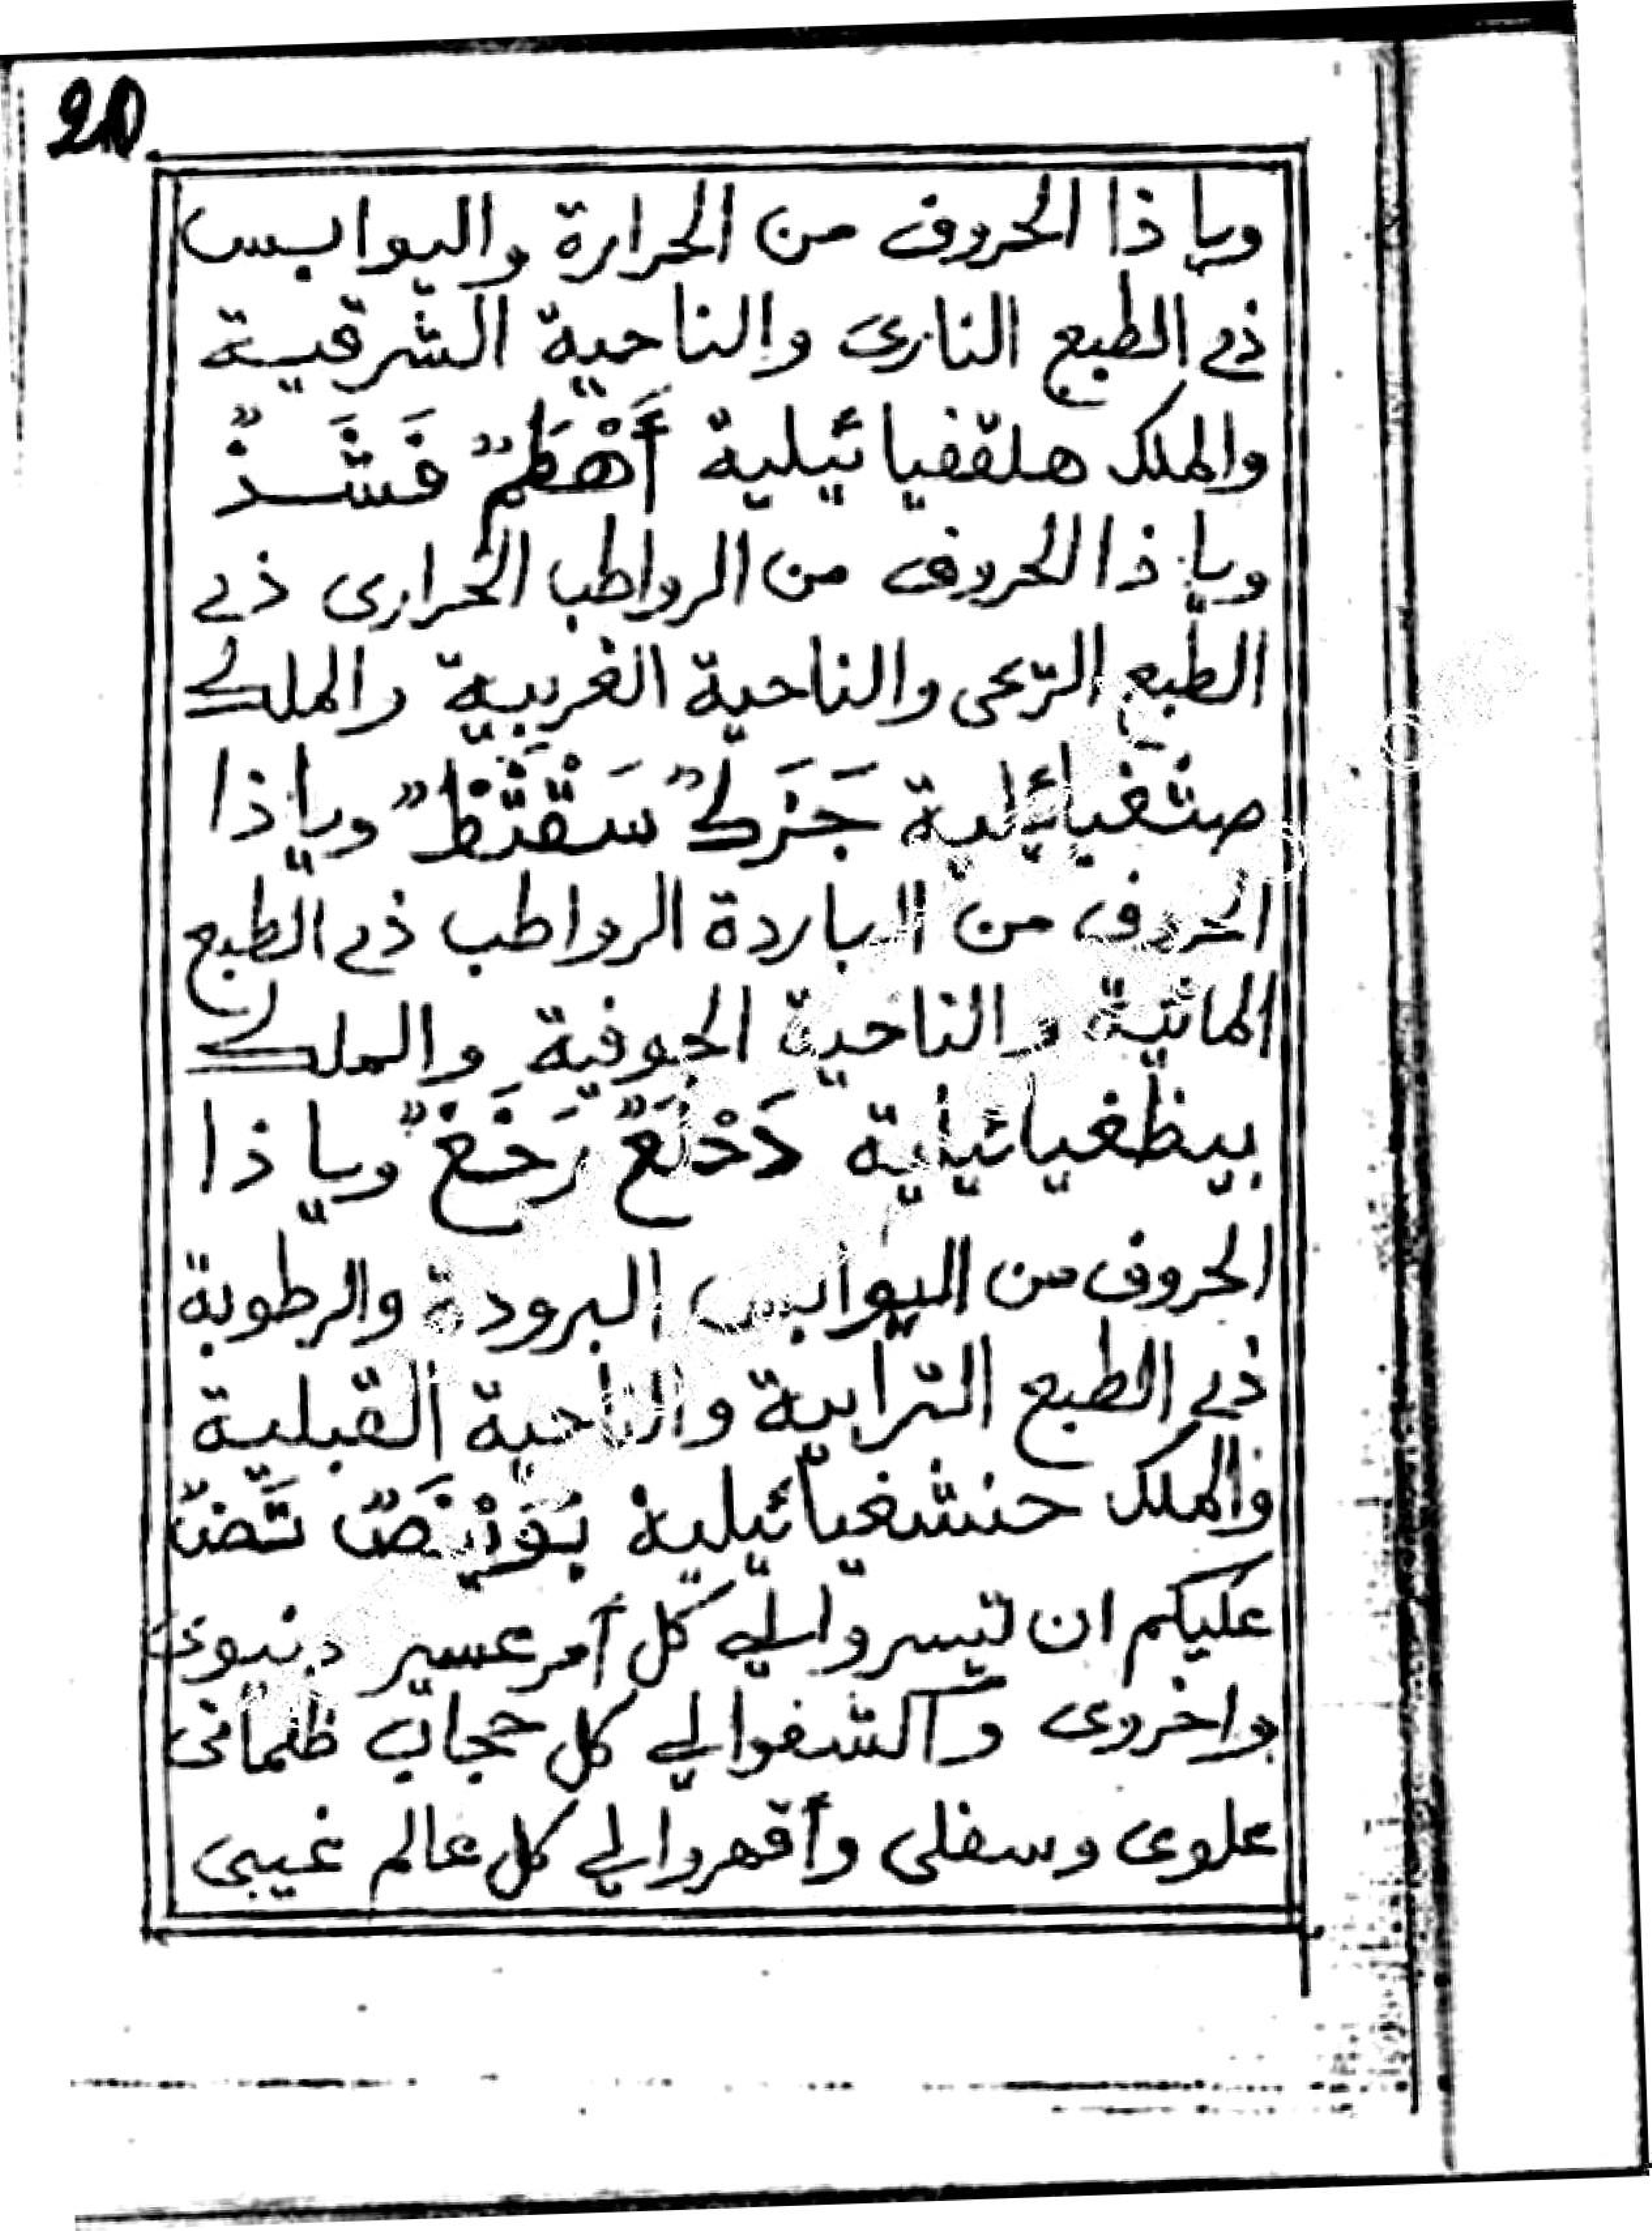 20
ويا ذا الحروف من الحرارة واليوابس
ذي الطبع النارى والناحية الشرقية
والملك هلقفيائيلية أَهْطَمٌ فَشَذٌ
ويا ذا الحروف من الرواطب الحرارى ذي
الطبع الرّيحى والناحية الغربية والملك
صتقيائيلية جَزَكٌ سَقْتَظٌ ويا ذا
الحروف من الباردة الرواطب ذي الطبع
المائية والناحية الجوفية والملك
بيظغيائيلية دَحْلَعٌ رَخَغٌ ويا ذا
الحروف من اليوابس البرودة والرطوبة
ذي الطبع الترابية والناحية القبلية
والملك حنشغيائيلية بَوَيْنَصٌ تَّضٌ
عليكم ان تيسروالي كل أمر عسير دنيوى
واخروى وأكشفوالي كل حجاب ظلمانى
علوى وسفلى وأقهروالي كل عالم غيبى